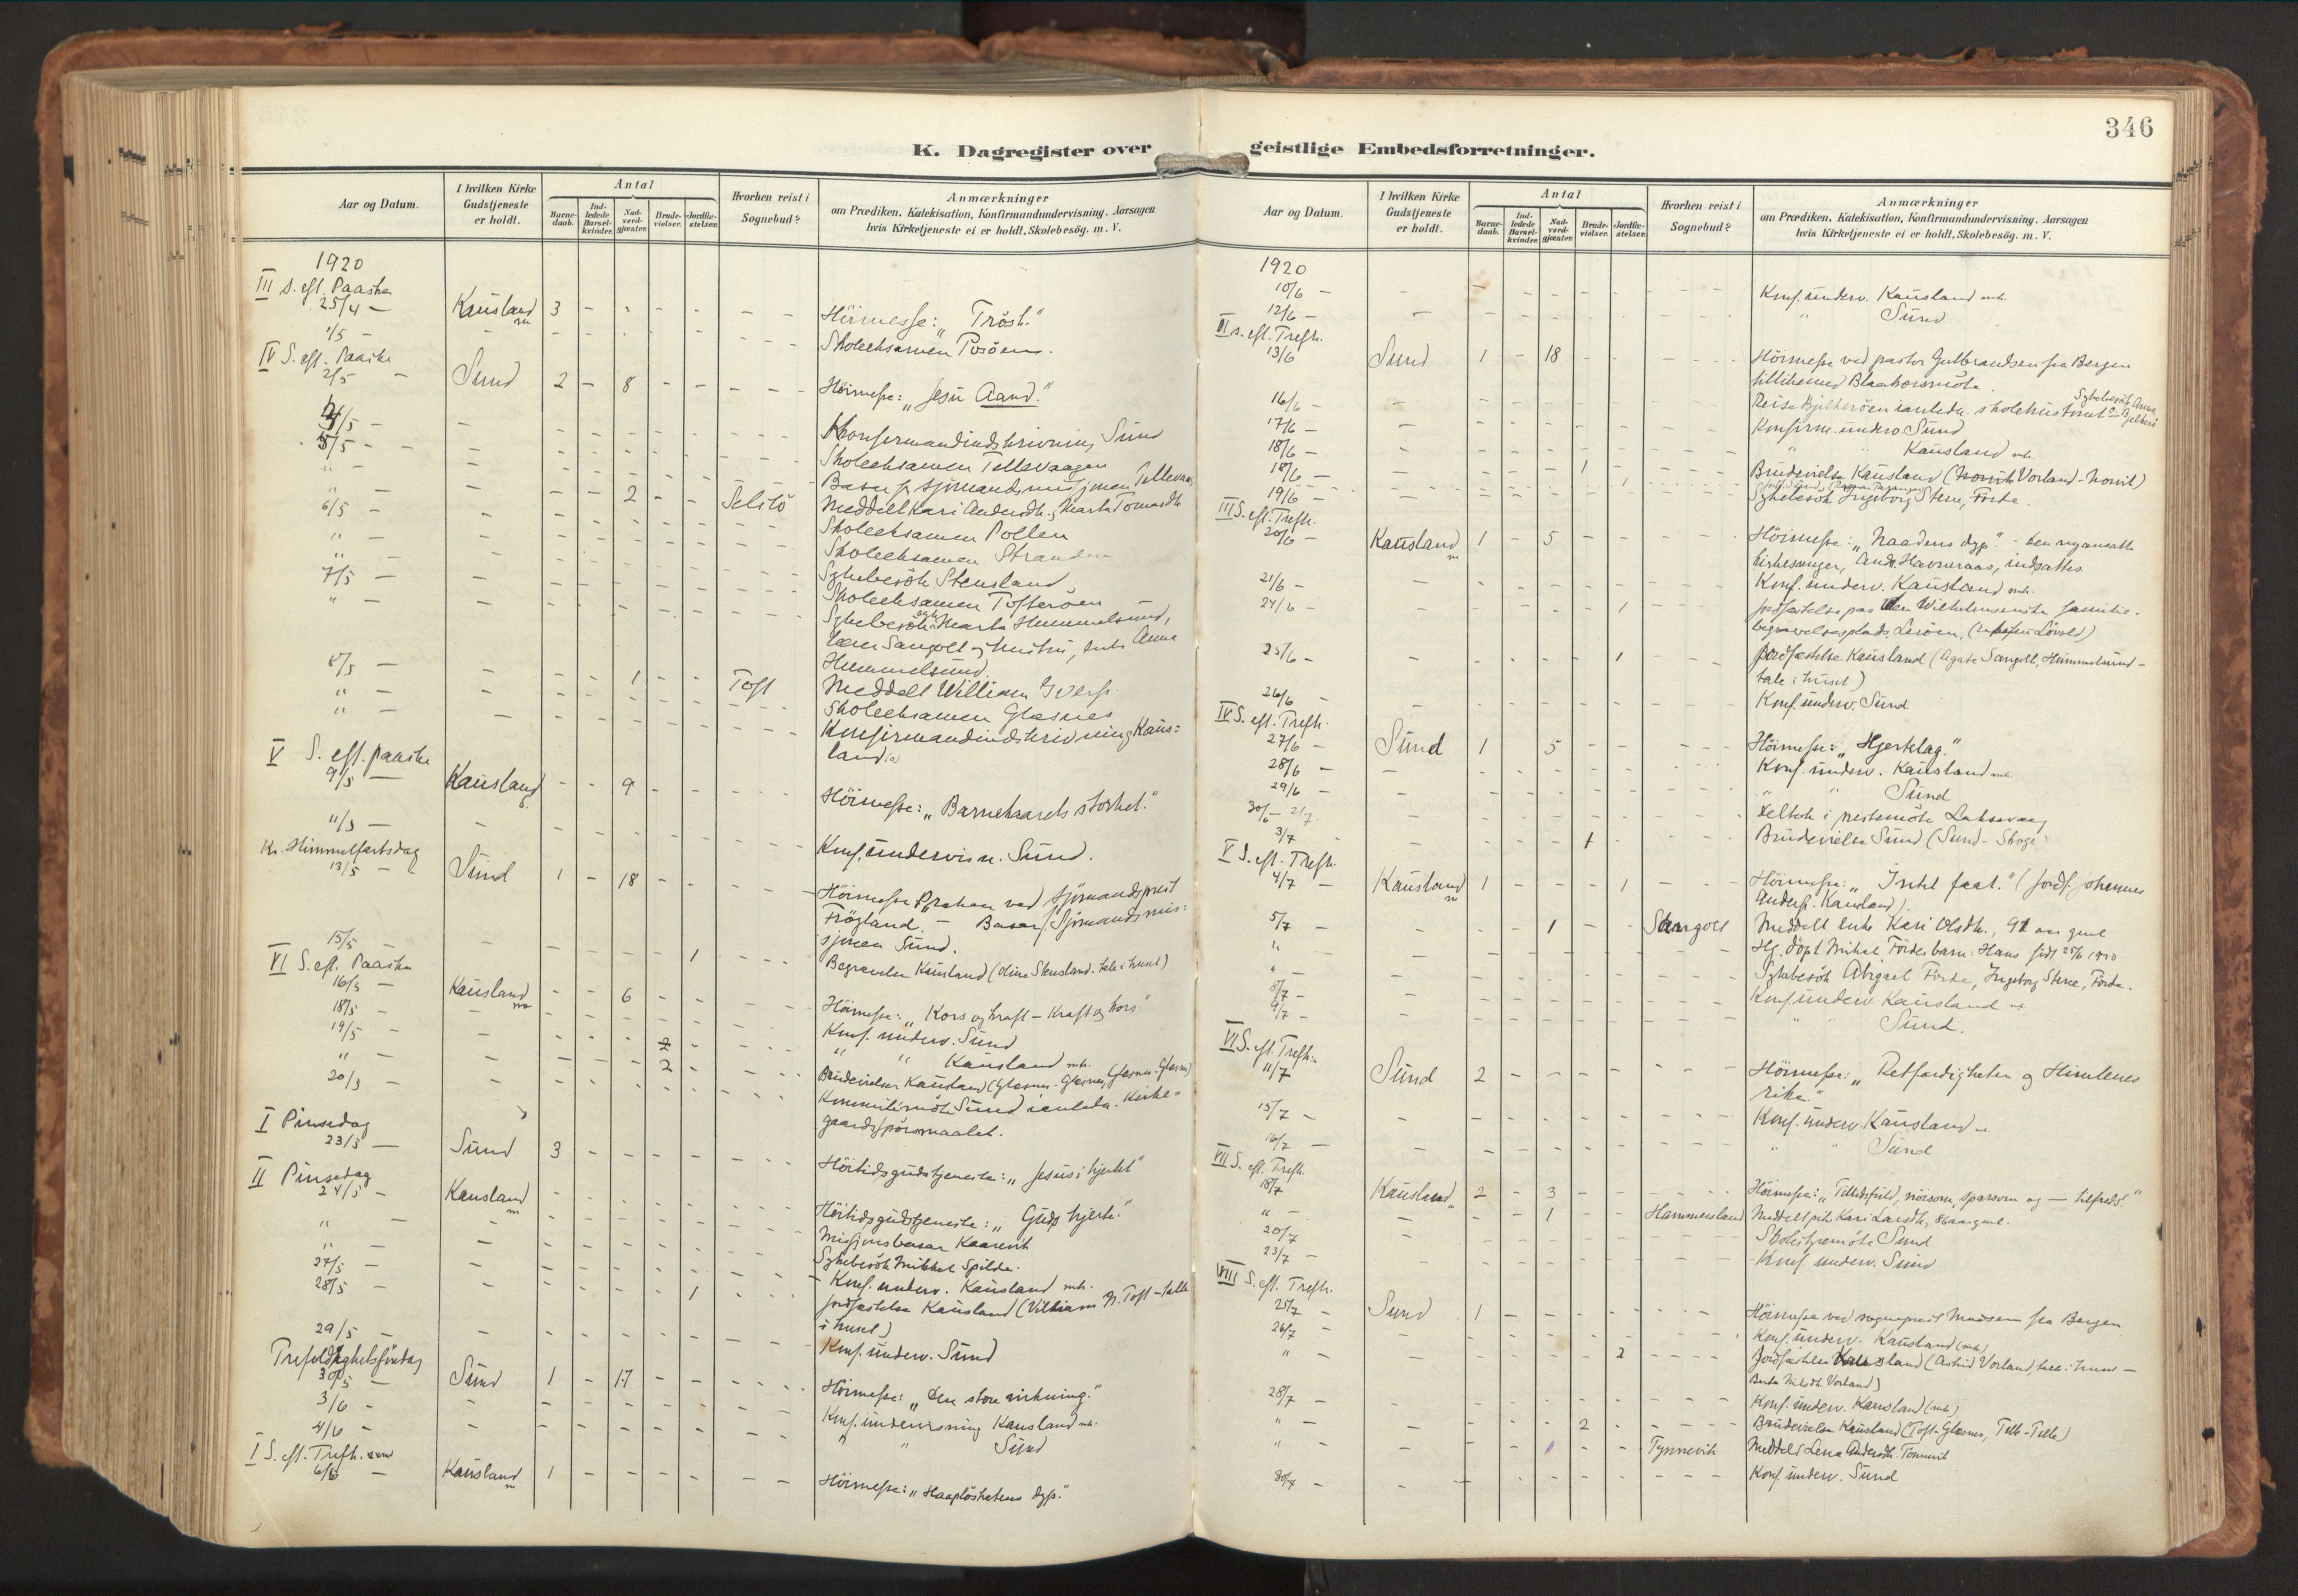 346
K. Dagregister over
Aar og Datum.
I hvilken Kirke Gudstjeneste er holdt.
Antal
Barne-daab.
Ind-ledede Barsel-kvinder.
Nad-verd-gjæster.
Brude-vielser.
Jordfæ-stelser.
Hvorhen reist i Sognebud?
Anmærkninger
om Prædiken, Katekisation, Konfirmandundervisning, Aarsagen
hvis Kirketjeneste ei er holdt, Skolebesög. m. V.
1920
III S. eft. Paaske
25/4 — Kausland m 3 - - - - - - Höimesse: "Tröst."
1/5 - - - - Skoleeksamen
IV S. eft. Paaske
2/5 — Sund 2 - 8 - - - - Höimesse: "Jesu Aand."
4/5 — - Konfirmandindskrivning Sund
5/5 - - Skoleeksamen Tellevaagen
" - - Basar f. sjömandsmisjonen Tellevaag
" - - - - 2 - - Selstö Meddelt Kari Andersdtr. og Marta Tomasdtr
6/5 — - Skoleeksamen Pollen
" - - Skoleeksamen Stranden
" - - Sykebesök Stensland
7/5 — - Skoleeksamen Tofteröen
" - - Sykebesök Marta Hummelsund,
lærer Sangolt og hustru, enke Anna
Hummelsund.
8/5 — - - - 1 - - Toft Meddelt William Iversen
" — - Skoleeksamen Glesnes
" — - Konfirmandindskrivning Kaus-
land
V S. eft. paaske
9/5 — Kausland - - 9 - - - - Höimesse: "Barnekaarets storhet."
11/5 — - Konf. undervisn. Sund.
Kr. Himmelfartsdag
13/5 — Sund 1 - 18 - - - - Höimesse ved sjömandsprest
Frögland. — Basar f. Sjömandsmis-
sjonen Sund.
15/5 - - - - - 1 Begravelse Kausland (Oline Stensland. tale i huset)
VI S. eft. Paaske
16/5 — Kausland - - 6 - - - - Höimesse: "Kors og kraft — Kraft og kors."
18/5 — - Konf. underv. Sund
19/5 — - 2 " " Kausland
" — - - - - 2 - Brudevielser Kausland (Glesnes-Glesnes, Glesnes-Glesnes)
20/5 — - Sund i anleda. Kirke-
gaardsspörsmaalet.
I Pinsedag
23/5 — Sund 3 - - - - - - Höitidsgudstjeneste: "Jesus i hjertet"
II Pinsedag
24/5 — Kausland m - - - - - - - Höitidsgudstjeneste: "Guds hjerte."
" — - Misjonsbasar Kaarevik
" — - Sykebesök Mikkel Spilde.
27/5 — - Konf. underv. Kausland
28/5 — - - - - - 1 Jordfæstelse Kausland (William Toft - tale
i huset)
29/5 — - Konf. underv. Sund
Trefoldighetsöndag
30/5 — Sund 1 - 17 - - - - Höimesse: "Den store virkning."
3/6 — - Konf. undervisning Kausland
4/6 — - " " Sund
I S. eft. Trefh.
6/6 — Kausland m 1 - - - - - - Höimesse: "Haaplöshetens dyp."
geistlige Embedsforretninger.
Aar og Datum.
I hvilken Kirke Gudstjeneste er holdt.
Antal
Barne-daab.
Ind-ledede Barsel-kvinder.
Nad-verd-gjæster.
Brude-vielser.
Jordfæ-stelser.
Hvorhen reist i Sognebud?
Anmærkninger
om Prædiken, Katekisation, Konfirmandundervisning, Aarsagen
hvis Kirketjeneste ei er holdt, Skolebesög. m. V.
1920
10/6 — - Konf. underv. Kausland
12/6 — - " Sund
II S. eft. Trefh.
13/6 Sund 1 - 18 - - - - Höimesse ved pastor Gulbrandsen fra Bergen
tillikemed Blaakorsmöte.
16/6 — - Reise Bjelkeröen i anleda. Sykebesök Anna
17/6 — - Konfirm. underv. Sund
18/6 — - " " Kausland
18/6 — - - - - 1 Brudevielse Kausland (Vorland - )
19/6 — - - - - - 1 Sykebesök Ingeborg Stene, Förde.
III S. eft. Trefh.
20/6 — Kausland m 1 - 5 - - - - Höimesse: "Naadens dyp." - den nyansatte
kirkesanger, Andr. Havneraas, indsattes
21/6 — - Konf. underv. Kausland
24/6 — - - - - - 1 Jordfæstelse paa den Wilhelmsenske familie-
begravelsesplads, Leröen, (Lövold)
25/6 — - - - - - 1 Jordfæstelse Kausland (Agate Sangolt, Hummelsund -
tale i huset)
26/6 — - Konf. underv. Sund
IV S. eft. Trefh.
27/6 — Sund 1 - 5 - - - - Höimesse: "Hjertelag."
28/6 — - Konf. underv. Kausland
29/6 — - " " Sund
30/6 - 2/7 Deltok i prestemöte Laksevaag
3/7 - - - - - 1 Brudevielse Sund (Sund - Skoge)
V S. eft. Trefh.
4/7 — Kausland m 1 - - - 1 - - Höimesse: "Intet feat." (Jordf. Johannes
Anders. Kausland).
5/7 - - - - 1 - - Sangolt Meddelt enke Kari Olsdtr., 91 aar gml
" - Hj. döpt Mikal Fördes barn Hans född 25/6 1920
" — - Sykebesök Abigael Förde, Ingeborg Stene, Förde.
8/7 — - Konf. underv. Kausland
9/7 — - " " Sund.
VI S. eft. Trefh.
11/7 Sund 2 - - - - - - Höimesse: "Retfærdigheten og Himlenes
rike."
15/7 — - Konf. underv. Kausland
16/7 — - " " Sund
VII S. eft. Trefh.
18/7 Kausland 2 - 3 - - - - Höimesse: "Tillidsfuld, nöisom, sparsom og — tilfreds!"
" — - - - 1 - - Hammersland Meddelt pike Kari Larsdtr, 86 aar gml.
20/7 - Skolestyremöte Sund
23/7 — - Konf. underv. Sund
VIII S. eft. Trefh.
25/7 — Sund 1 - - - - - - Höimesse ved sogneprest Madsen fra Bergen
26/7 — - Konf. underv. Kausland
" — - - - - - 2 Jordfæstelse Kausland (Astrid Vorland, tale i huset —
Berta Nilsdtr. Vorland)
28/7 — - Konf. underv. Kausland
" — - - - - 2 Brudevielser Kausland (Toft-Glesnes, Telle-Telle)
" — - Tynnevik Meddelt Lena Andersdtr. Tonnevik
30/7 — - Konf. underv. Sund